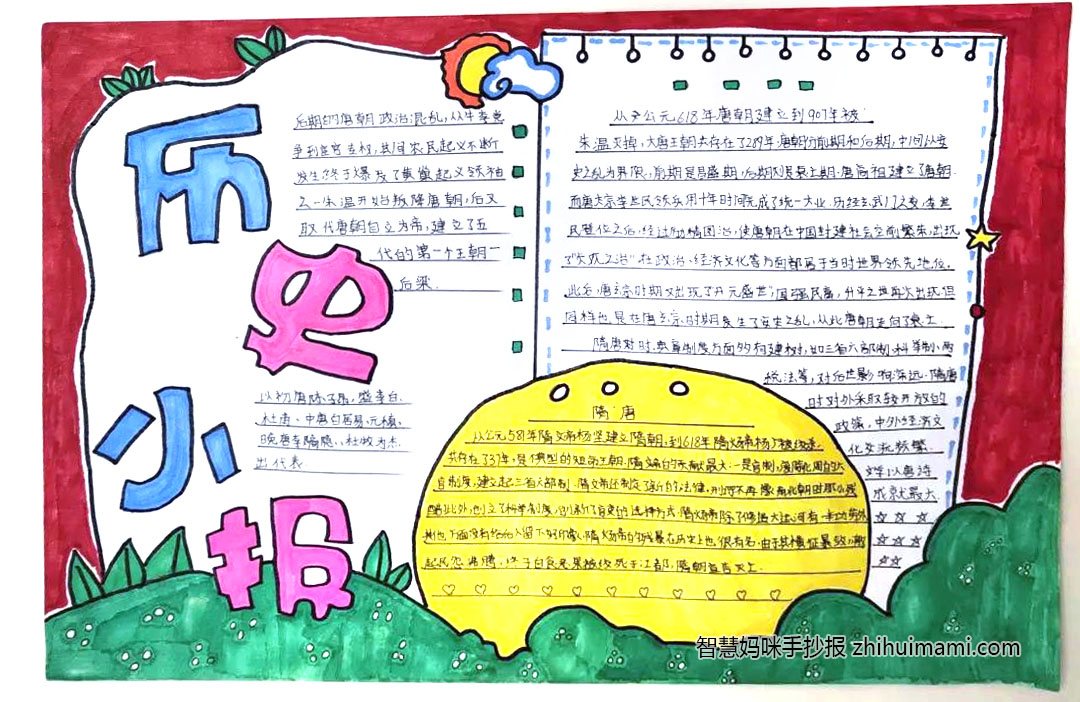 历史小报
后期的唐朝政治混乱,从牛李党
争到宦官专权,其间农民起义不断
发生终于爆发了黄巢起义领袖
之一朱温开始叛降唐朝,后又
取代唐朝自立为帝,建立了五
代的第一个王朝一
后梁.
以初唐陈子昂,盛李白.
杜甫、中唐白居易.元稹.
晚唐李商隐、杜牧为杰.
出代表
从 公元618年唐朝建立到907年被
朱温灭掉,大唐王朝共存在了289年唐朝分前期和后期,中间以安
史之乱为界限,前期是昌盛期,后期则是衰亡期.唐高祖建立了唐朝.
而唐太宗李世民领兵用十年时间完成了统一大业.历经玄武门之变,李世
民登位之后,经过励精图治,使唐朝在中国封建社会空前繁荣,出现
了"贞观之治".在政治、经济文化等方面都居于当时世界领先地位.
此后,唐玄宗时期又出现了开元盛世",国强民富,升平之世再次出现但
同样也是在唐玄宗时期发生了安史之乱,从此唐朝走向了衰亡.
隋唐对时 制度方面多有建树,如三省六部制.科举制.两
税法等,对后世影响深远.隋唐
时对外采取较开放的
政策,中外经济文
化交流频繁.
文学以唐诗
成就最大
隋 唐
从公元581年隋文帝杨坚建立隋朝,到618年隋炀帝杨广被缢死.
共存在了37年,是典型的短命王朝.隋文帝的贡献最大:一是官制,废除北周的六
官制度,建立起三省六部制.隋文帝还制定了 的法律,刑罚不再像南北朝时那么残
酷此外,创立了科举制度, 了官吏的选择方式.隋炀帝除了修通大运河有一定功劳外
其他方面没有给后人留下好印象.隋炀帝的残暴在历史上也很有名.由于其横征暴敛,激
起民怨沸腾,终于自食恶果被缢死于江都,隋朝宣告灭亡.
智慧妈咪手抄报 zhihuimami.com